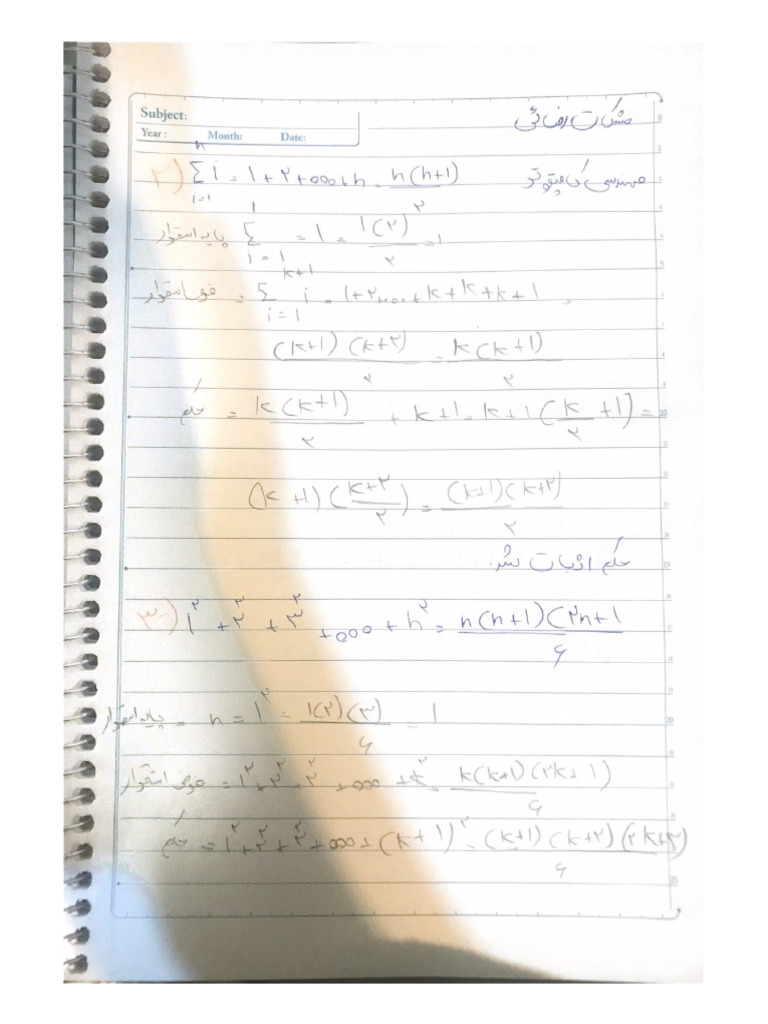 Subject:
Year: Month: Date:
مشکات رضائی
مهندسی کامپیوتر
۲) n Σ i=1 i = 1+۲+ooo+n = n(n+1) / ۲
پایه استقرار 1 Σ i=1 = 1 = 1(۲) / ۲ = 1
فرض استقرار = k+1 Σ i=1 i = 1+۲+ooo+k+k+k+1 =
(k+1)(k+۲) / ۲ = k(k+1) / ۲
حکم = k(k+1) / ۲ + k+1 = k+1 (k / ۲ +1) =
(k+1)(k+۲ / ۲) = (k+1)(k+۲) / ۲
حکم اثبات شد.
۳) 1^۲ + ۲^۲ + ۳^۲ + ooo + n^۲ = n(n+1)(۲n+1 / ۶
پایه استقرار = n = 1^۲ = 1(۲)(۳) / ۶ = 1
فرض استقرار = 1^۲+۲^۲+۳^۲ + ooo + k^۲ = k(k+1)(۲k+1) / ۶
حکم = 1^۲+۲^۲+۳^۲+ooo+(k+1)^۲ = (k+1)(k+۲)(۲k+۳) / ۶